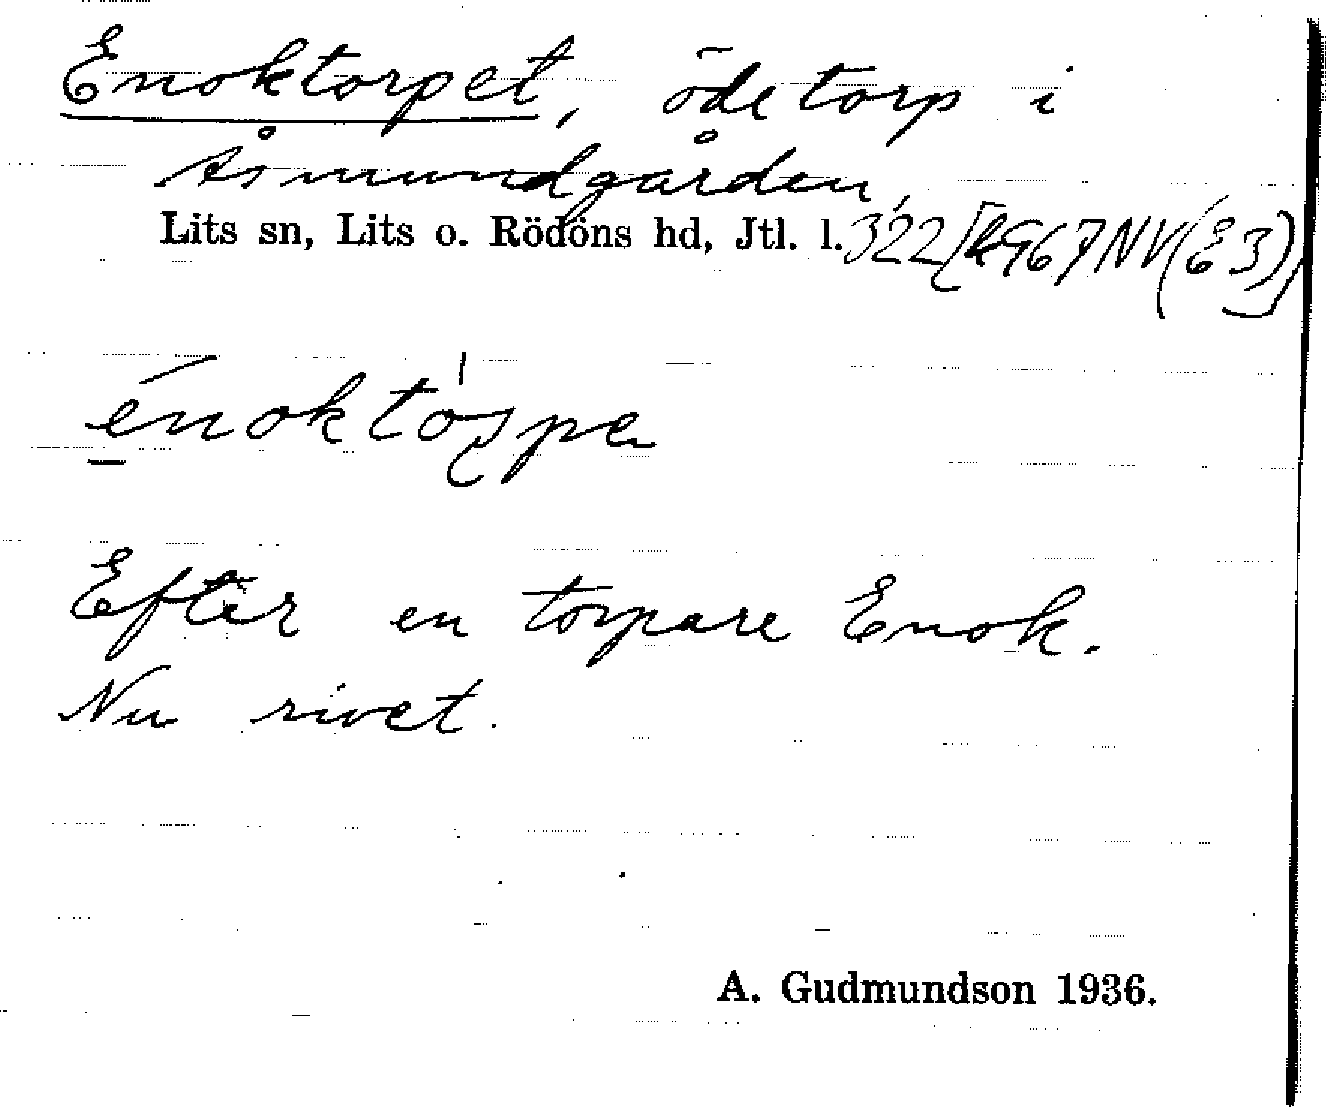 Enoktorpet, ödetorp i
Åsmundgården,
Lits sn, Lits o. Rödöns hd, Jtl. l. 322 [R967NV(E3)]
Efter en torpare Enok.
Nu rivet.
A. Gudmundson 1936.